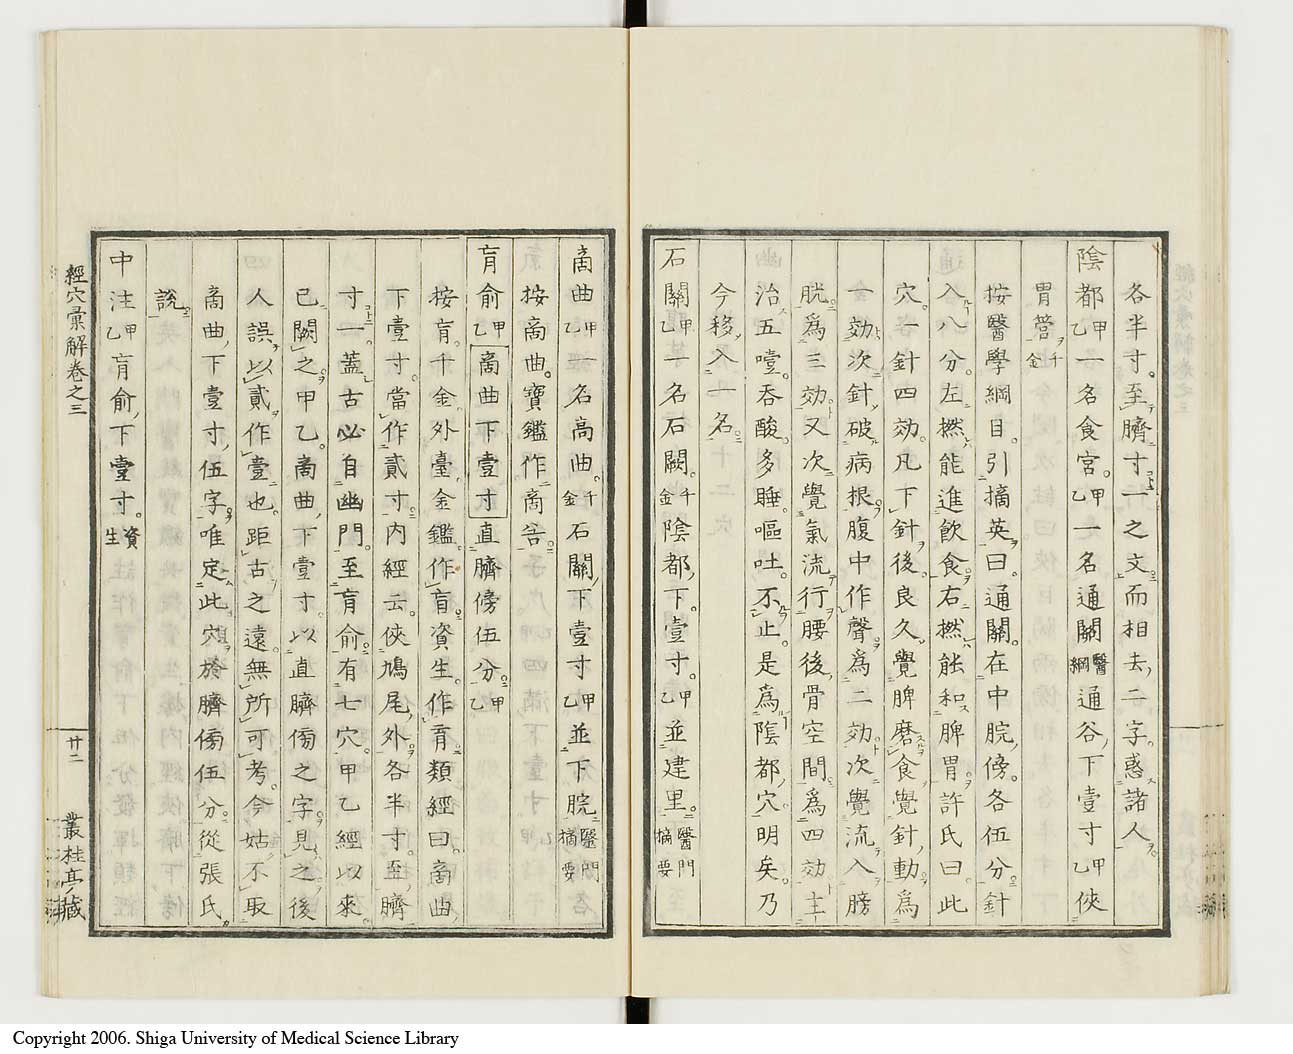 各半寸。至臍寸一之文而相去二字。惑諸人。
陰都甲乙一名食宮。甲乙一名通關醫綱通谷下壹寸甲乙俠
胃募。千金
按醫學綱目。引摘英曰。通關。在中脘傍。各伍分。針
入八分。左撚能進飲食。右撚能和脾胃。許氏曰。此
穴。一針四効。凡下針後良久。覺脾磨食。覺針動爲
一効。次針破病根。腹中作聲爲二効。次覺流入膀
胱爲三効。又次覺氣流行腰後骨空間爲四効。主
治五噎。吞酸多睡。嘔吐不止。是爲陰都穴明矣。乃
今移入一名。
石關甲乙一名石闕。千金陰都下壹寸。甲乙並建里。醫門摘要
商曲甲乙一名高曲。千金石關下壹寸甲乙並下脘。醫門摘要
按商曲。寶鑑作商谷。
肓俞甲乙商曲下壹寸直臍傍伍分。甲乙
按肓。千金外臺金鑑作盲。資生作育。類經曰。商曲
下壹寸。當作貳寸。內經云。俠鳩尾外各半寸。至臍
寸一。蓋古必自幽門至肓俞有七穴。甲乙經以來。
已闕之。甲乙。商曲下壹寸。以直臍傍之字見之。後
人誤以貳作壹也。距古之遠。無所可考。今姑不取
商曲下壹寸伍字。唯定此穴於臍傍伍分。從張氏。
說。
中注甲乙肓俞下壹寸。資生
經穴彙解卷之三
廿二
叢桂亭藏
Copyright 2006. Shiga University of Medical Science Library